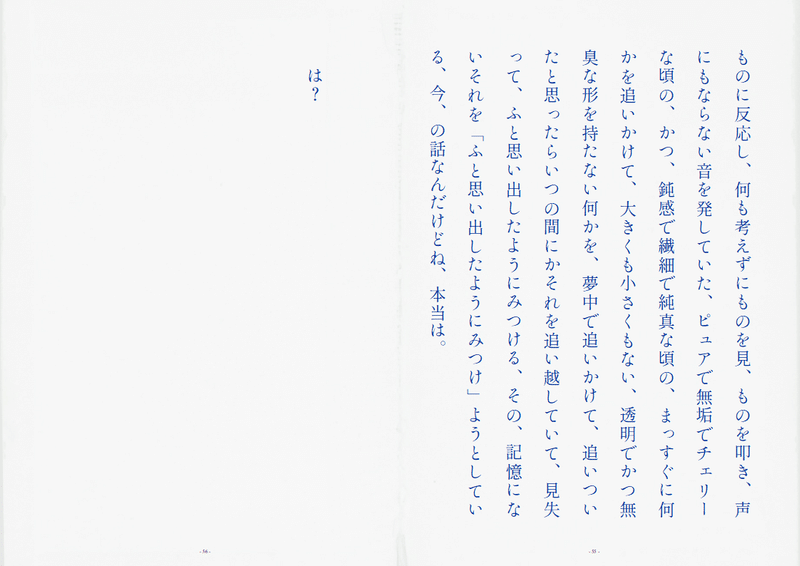 ものに反応し、何も考えずにものを見、ものを叩き、声
にもならない音を発していた、ピュアで無垢でチェリー
な頃の、かつ、鈍感で繊細で純真な頃の、まっすぐに何
かを追いかけて、大きくも小さくもない、透明でかつ無
臭な形を持たない何かを、夢中で追いかけて、追いつい
たと思ったらいつの間にかそれを追い越していて、見失
って、ふと思い出したようにみつける、その、記憶にな
いそれを「ふと思い出したようにみつけ」ようとしてい
る、今、の話なんだけどね、本当は。
は？